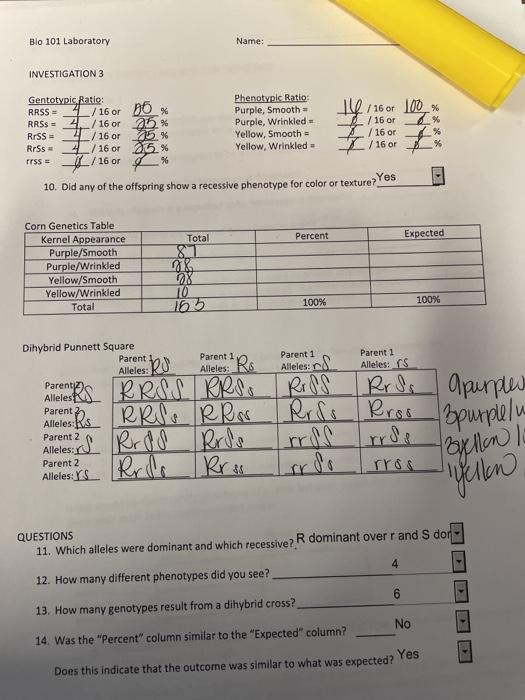 Bio 101 Laboratory Name:
INVESTIGATION 3
Gentotypic Ratio: Phenotypic Ratio:
RRSS = 4 / 16 or 25 % Purple, Smooth = 16 / 16 or 100 %
RRSs = 4 / 16 or 25 % Purple, Wrinkled = 0 / 16 or 0 %
RrSS = 4 / 16 or 25 % Yellow, Smooth = 0 / 16 or 0 %
RrSs = 4 / 16 or 25 % Yellow, Wrinkled = 0 / 16 or 0 %
rrss = 0 / 16 or 0 %
10. Did any of the offspring show a recessive phenotype for color or texture? Yes
Corn Genetics Table
Kernel Appearance Total Percent Expected
Purple/Smooth 87
Purple/Wrinkled 28
Yellow/Smooth 28
Yellow/Wrinkled 10
Total 153 100% 100%
Dihybrid Punnett Square
Parent 1 Parent 1 Parent 1
Alleles: RS Alleles: Rs Alleles: rS Alleles: rs
Parent 2 Alleles: RS RRSS RRSs RrSS RrSs 9 purple
Parent 2 Alleles: Rs RRSs RRss RrSs Rrss 3 purple/w
Parent 2 Alleles: rS RrSS RrSs rrSS rrSs 3 yellow
Parent 2 Alleles: rs RrSs Rrss rrSs rrss 1 yellow
QUESTIONS
11. Which alleles were dominant and which recessive? R dominant over r and S dor
12. How many different phenotypes did you see? 4
13. How many genotypes result from a dihybrid cross? 6
14. Was the "Percent" column similar to the "Expected" column? No
Does this indicate that the outcome was similar to what was expected? Yes